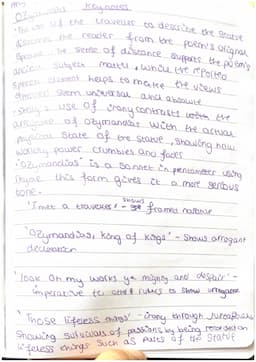 Ozymandias Key notes
- The use of the traveller to describe the statue
distances the reader from the poem's original
speaker. The sense of distance supports the poem's
ancient subject matter, while the reported
speech element helps to make the views
seem universal and absolute
- Shelly's use of irony contrasts with the
arrogance of Ozymandias with the actual
physical state of the statue, showing how
worldly power crumbles and fades
- 'Ozymandias' is a sonnet in pentameter using
rhyme this form gives it a more serious
tone.
'I met a traveller' - shows framed narrative
'Ozymandias, King of Kings' - Shows arrogant
declaration
'look on my works ye mighty and despair' -
imperative to rulers to show arrogance
'Those lifeless things' - irony through juxtaposition
showing survival of passions by being recorded on
lifeless things such as ruins of the statue